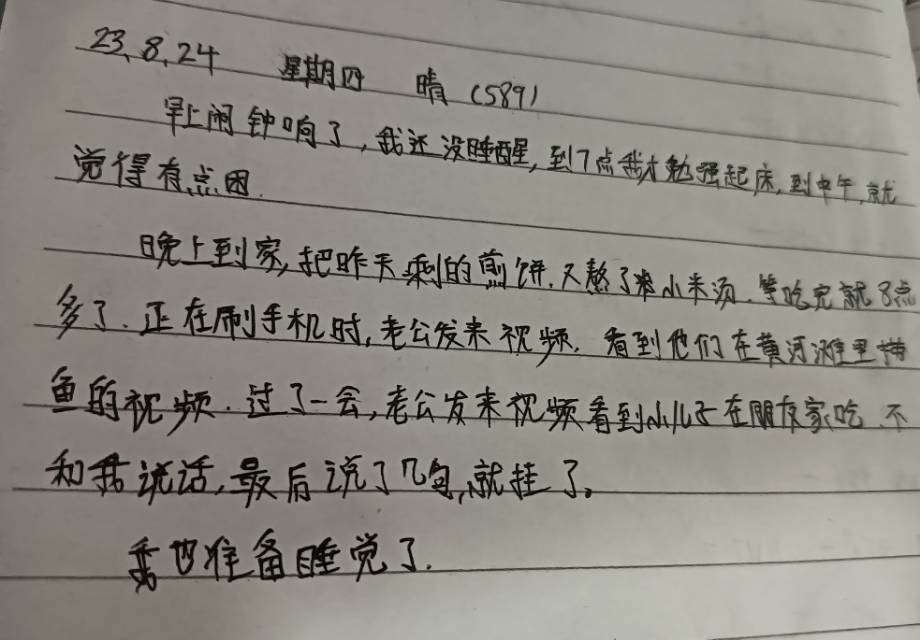 23.8.24 星期四 晴 (589)
早上闹钟响了,我还没睡醒,到7点我才勉强起床,到中午,就
觉得有点困.
晚上到家,把昨天剩的煎饼.又熬了小米汤.等吃完就8点
多了.正在刷手机时,老公发来视频.看到他们在黄河滩里捕
鱼的视频.过了一会,老公发来视频看到小儿子在朋友家吃.不
和我说话,最后说了几句,就挂了。
我也准备睡觉了.